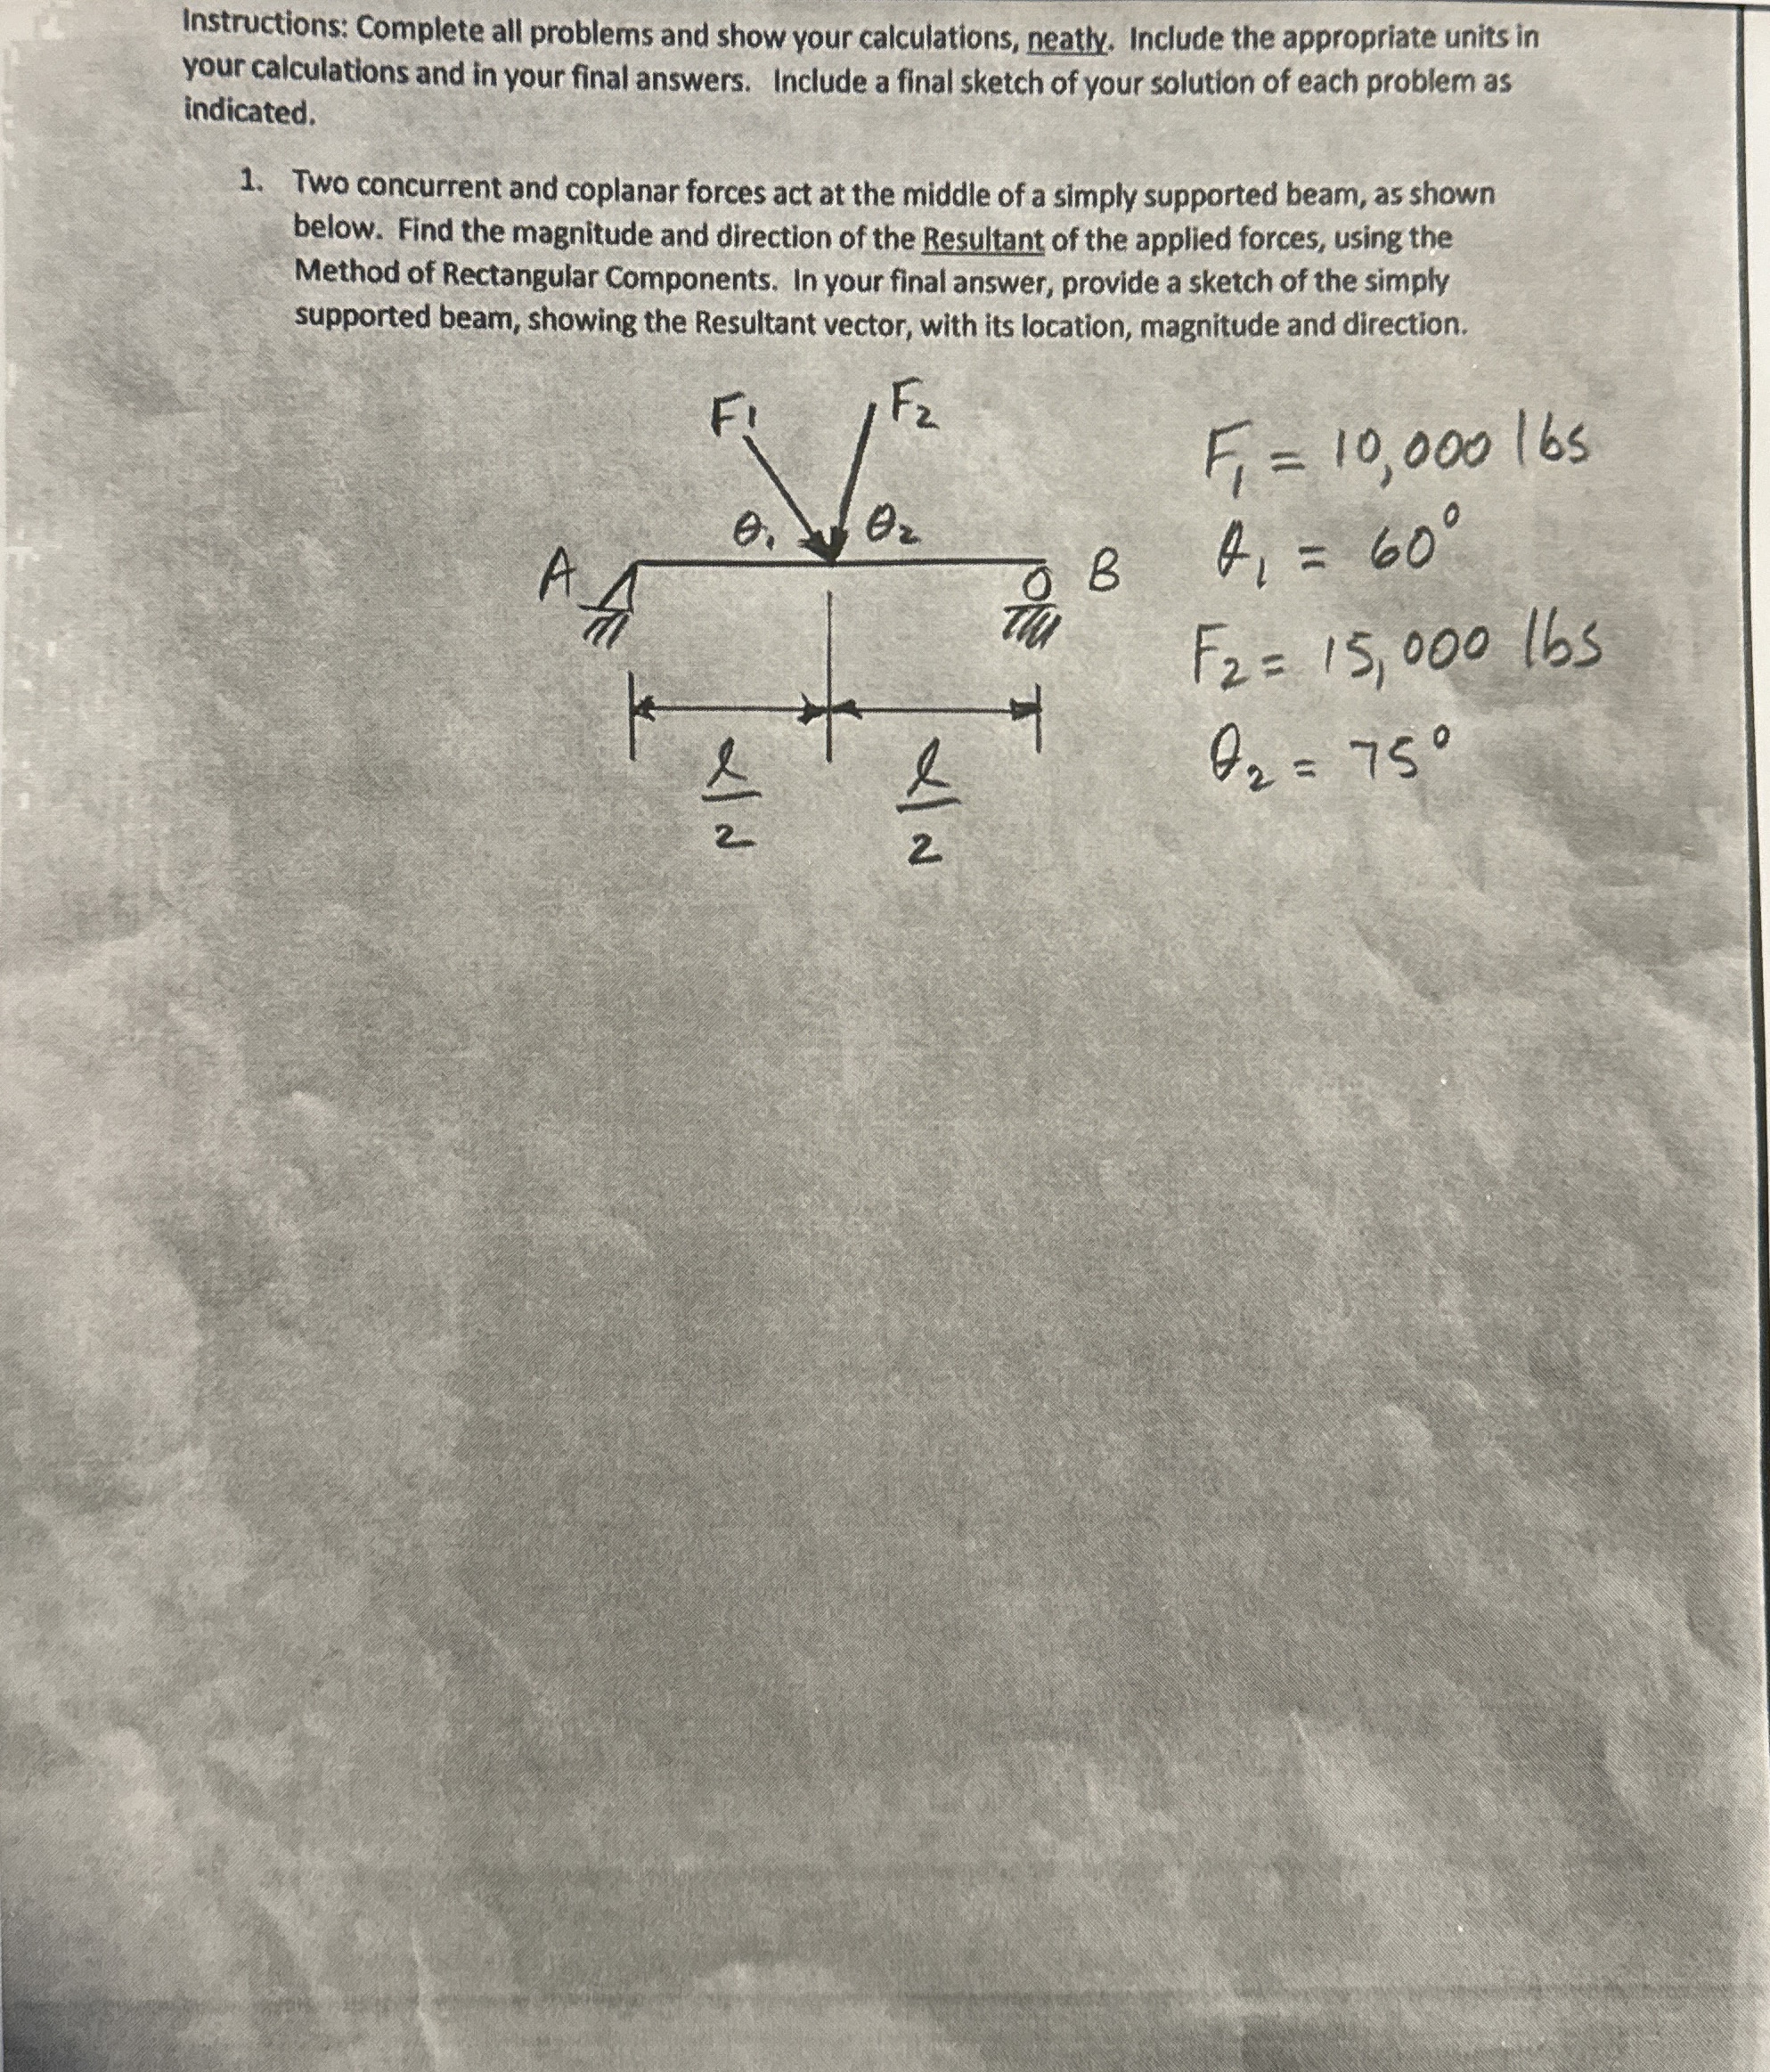 Instructions: Complete all problems and show your calculations, neatly. Include the appropriate units in
your calculations and in your final answers. Include a final sketch of your solution of each problem as
indicated.
1. Two concurrent and coplanar forces act at the middle of a simply supported beam, as shown
below. Find the magnitude and direction of the Resultant of the applied forces, using the
Method of Rectangular Components. In your final answer, provide a sketch of the simply
supported beam, showing the Resultant vector, with its location, magnitude and direction.
F1 F2
F1 = 10,000 lbs
θ1 θ2
A B
θ1 = 60°
F2 = 15,000 lbs
θ2 = 75°
l/2 l/2